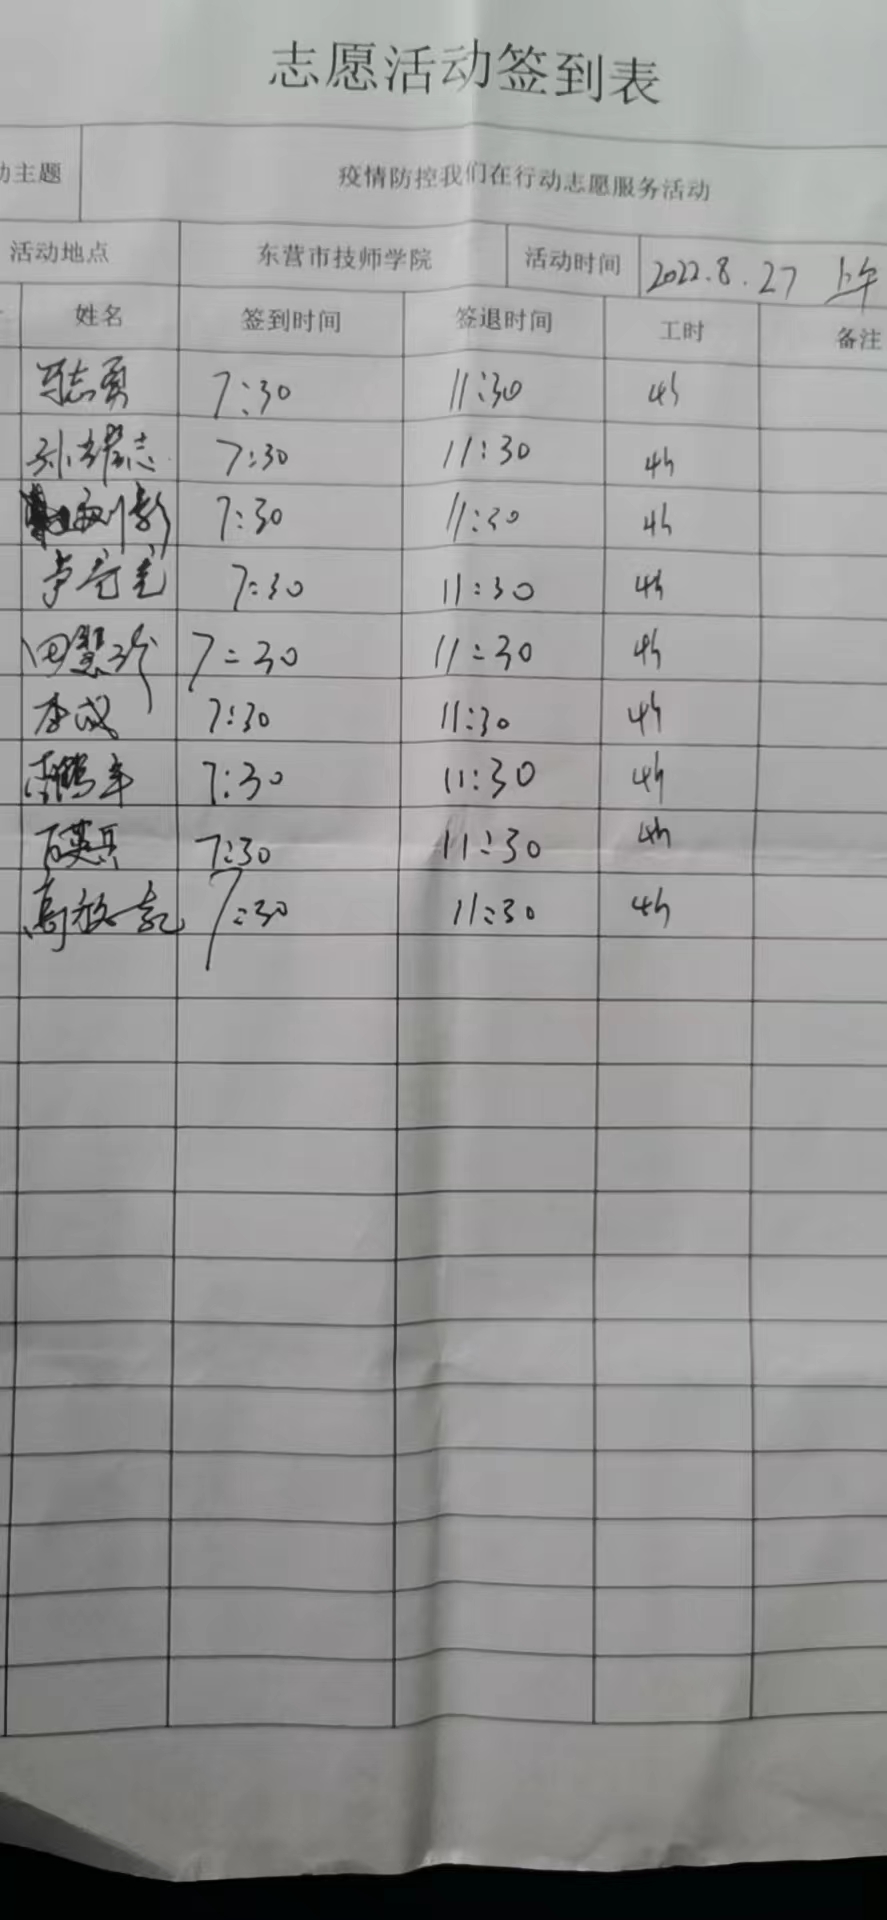 志愿活动签到表
动主题 疫情防控我们在行动志愿服务活动
活动地点 东营市技师学院 活动时间 2022.8.27 上午
姓名 签到时间 签退时间 工时 备注
马志勇 7:30 11:30 4h
孙耀志 7:30 11:30 4h
7:30 11:30 4h
7:30 11:30 4h
田慧珍 7:30 11:30 4h
李成 7:30 11:30 4h
7:30 11:30 4h
7:30 11:30 4h
高 7:30 11:30 4h